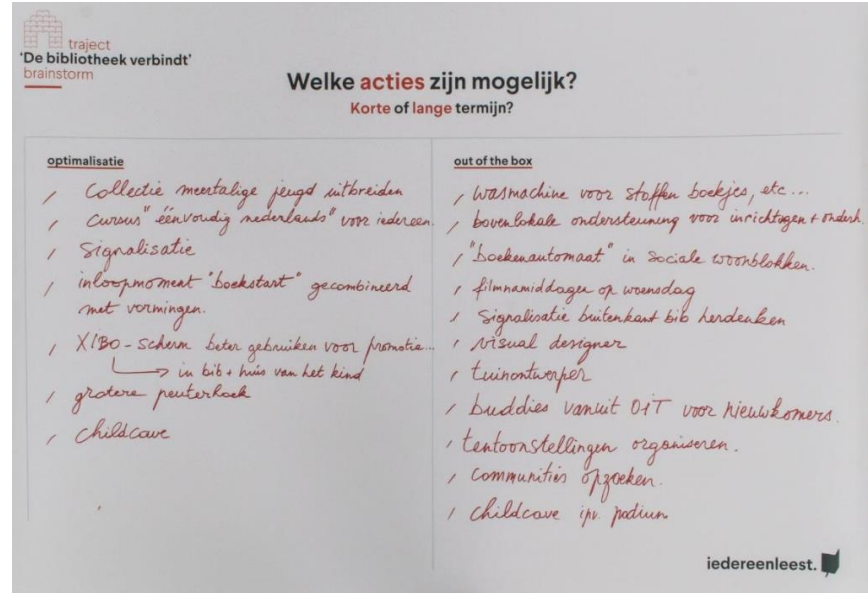 traject
'De bibliotheek verbindt'
brainstorm
Welke acties zijn mogelijk?
Korte of lange termijn?
optimalisatie
/ Collectie meertalige jeugd uitbreiden
/ Cursus "éénvoudig nederlands" voor iedereen.
/ Signalisatie
/ inloopmoment "boekstart" gecombineerd
met vormingen.
/ XIBO-scherm beter gebruiken voor promotie...
→ in bib + huis van het kind
/ grotere peuterhoek
/ childcave
out of the box
/ wasmachine voor stoffen boekjes, etc...
/ bovenlokale ondersteuning voor inrichtingen + onderh.
/ "boekenautomaat" in sociale woonblokken.
/ filmnamiddagen op woensdag
/ Signalisatie buitenkant bib herdenken
/ visual designer
/ tuinontwerper
/ buddies vanuit voor nieuwkomers.
/ tentoonstellingen organiseren.
/ communities opzoeken.
/ childcave ipv. podium.
iedereenleest.